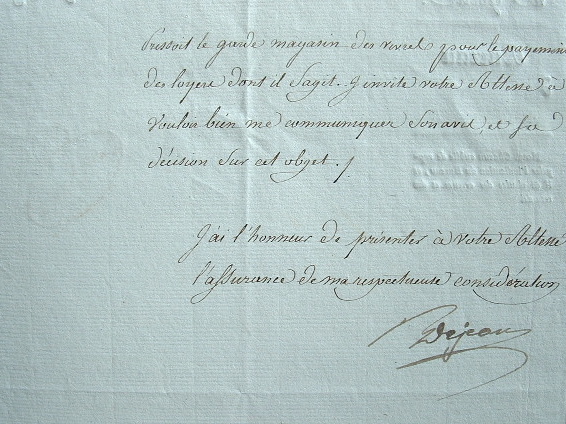 Pressoit le garde magasin des vivres pour le payement
des loyers dont il Sagit. J'invite votre Altesse à
vouloir bien me communiquer Son avel et Sa
décision Sur cet objet. /
J'ai l'honneur de présenter à votre Altesse
l'assurance de ma respectueuse considération
Dejean